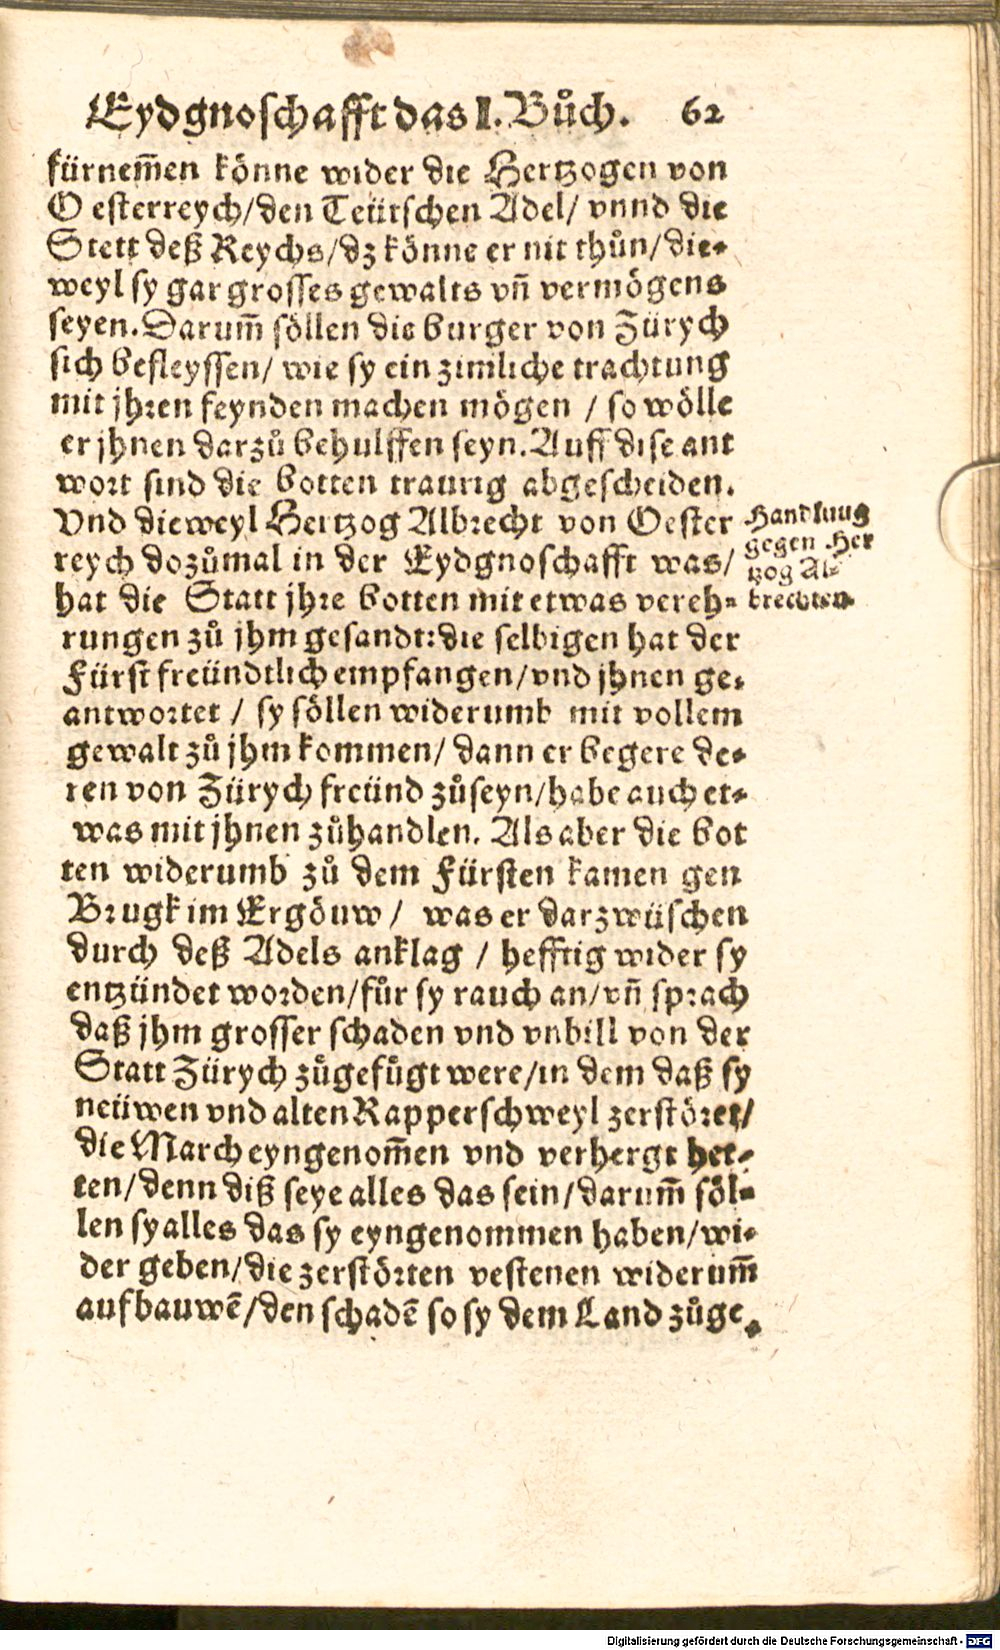 Eydgnoschafft das I. Bůch. 62
fürnem̄en könne wider die Hertzogen von
Oesterreych/den Teütschen Adel/ vnnd die
Stett deß Reychs/dz könne er nit thůn/die-
weyl sy gar grosses gewalts vñ vermögens
seyen. Darum̄ söllen die burger von Zürych
sich befleyssen/ wie sy ein zimliche trachtung
mit jhren feynden machen mögen / so wölle
er jhnen darzů behulffen seyn. Auff dise ant
wort sind die botten traurig abgescheiden.
Vnd dieweyl Hertzog Albrecht von Oester
reych dozůmal in der Eydgnoschafft was/
hat die Statt jhre botten mit etwas vereh-
rungen zů jhm gesandt: die selbigen hat der
Fürst freündtlich empfangen/vnd jhnen ge-
antwortet / sy söllen widerumb mit vollem
gewalt zů jhm kommen/ dann er begere de-
ren von Zürych freünd zůseyn/habe auch et-
was mit jhnen zůhandlen. Als aber die bot
ten widerumb zů dem Fürsten kamen gen
Brugk im Ergöuw / was er darzwüschen
durch deß Adels anklag / hefftig wider sy
entzündet worden/fůr sy rauch an/vñ sprach
daß jhm grosser schaden vnd vnbill von der
Statt Zürych zůgefůgt were/in dem daß sy
neüwen vnd alten Rapperschweyl zerstöret/
die March eyngenom̄en vnd verhergt het-
ten/denn diß seye alles das sein/darum̄ söl-
len sy alles das sy eyngenommen haben/wi-
der geben/die zerstörten vestenen widerum̄
aufbauwē/den schadē so sy dem Land zůge-
Handlung
gegen Her
tzog Al-
brechten.
Digitalisierung gefördert durch die Deutsche Forschungsgemeinschaft - DFG